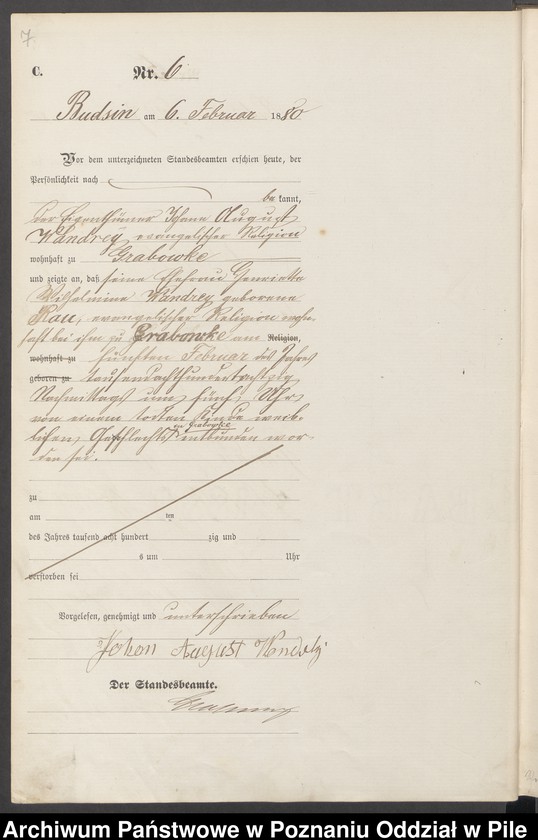 7
C.
Nr. 6
Budsin am 6. Februar 1880
Vor dem unterzeichneten Standesbeamten erschien heute, der
Persönlichkeit nach
be kannt,
der Eigenthümer Johann August
Wandrey, evangelischer Religion
wohnhaft zu Grabowke
und zeigte an, daß seine Ehefrau Henriette
Wilhelmine Wandrey, geborene
Rau, evangelischer Religion wohn-
haft bei ihm zu Grabowke am Religion,
wohnhaft zu fünften Februar des Jahres
geboren zu tausendachthundertachtzig
Nachmittags um fünf Uhr
von einem todten Kinde weib-
lichen Geschlechts zu Grabowke entbunden wor-
den sei.
zu
am ten
des Jahres tausend acht hundert zig und
s um Uhr
verstorben sei
Vorgelesen, genehmigt und unterschrieben
Johan August
Der Standesbeamte.
Archiwum Państwowe w Poznaniu Oddział w Pile